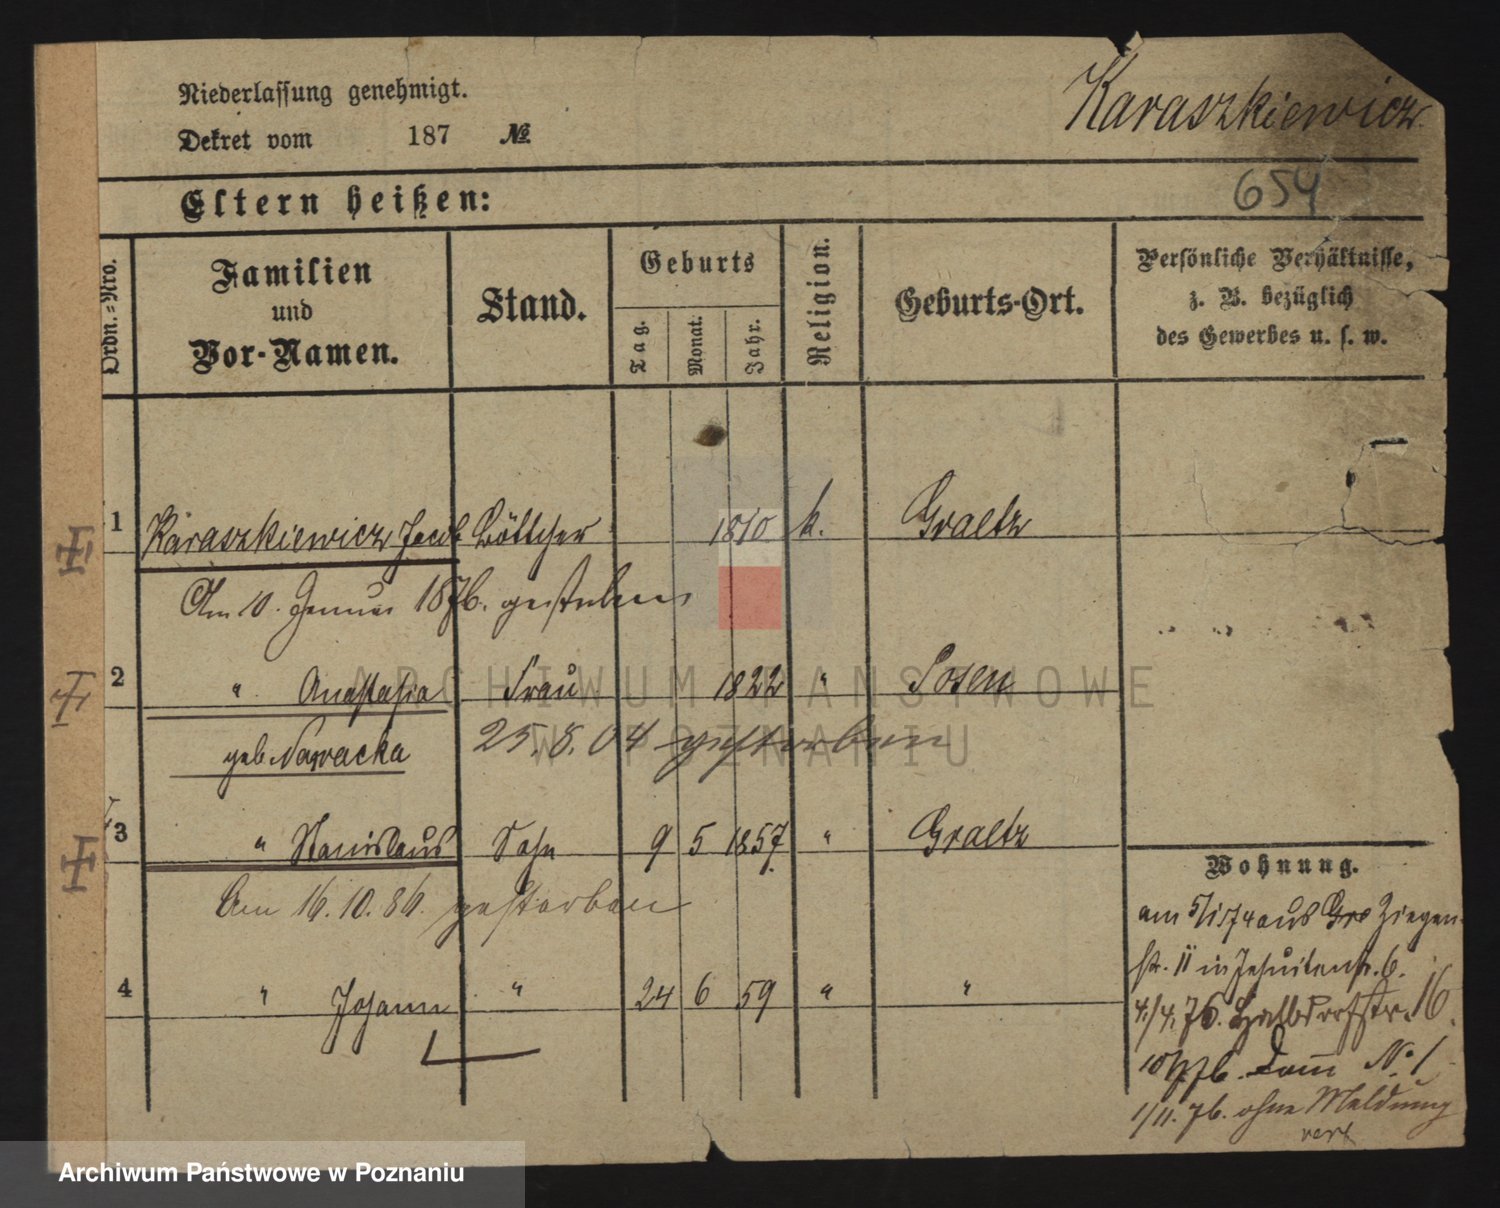 Niederlassung genehmigt.
Karaszkiewicz
Dekret vom 187 №
Eltern heißen:
654
Ordn.-Nro.
Familien
und
Vor-Namen.
Stand.
Geburts
Tag.
Monat.
Jahr.
Religion.
Geburts-Ort.
Persönliche Verhältnisse,
z. B. bezüglich
des Gewerbes u. s. w.
1 Karaszkiewicz Jacob Böttcher 1810 k. Graetz
Am 10. Januar 1876. gestorben
2 " Anastasia Frau 1822 " Posen
geb. Nawacka 25. 8. 04 gestorben
3 " Stanislaus Sohn 9 5 1857. " Graetz
Am 16. 10. 86. gestorben
4 " Johann " 24 6 59 " "
Wohnung.
am 5/1 74 aus Gro Ziegen-
str. 11 in Jesuitenstr. 6.
4/4. 76. Halbdorfstr. 16.
76. Dom No. 1
1/11. 76. ohne Meldung
verz
ARCHIWUM PAŃSTWOWE
W POZNANIU
Archiwum Państwowe w Poznaniu